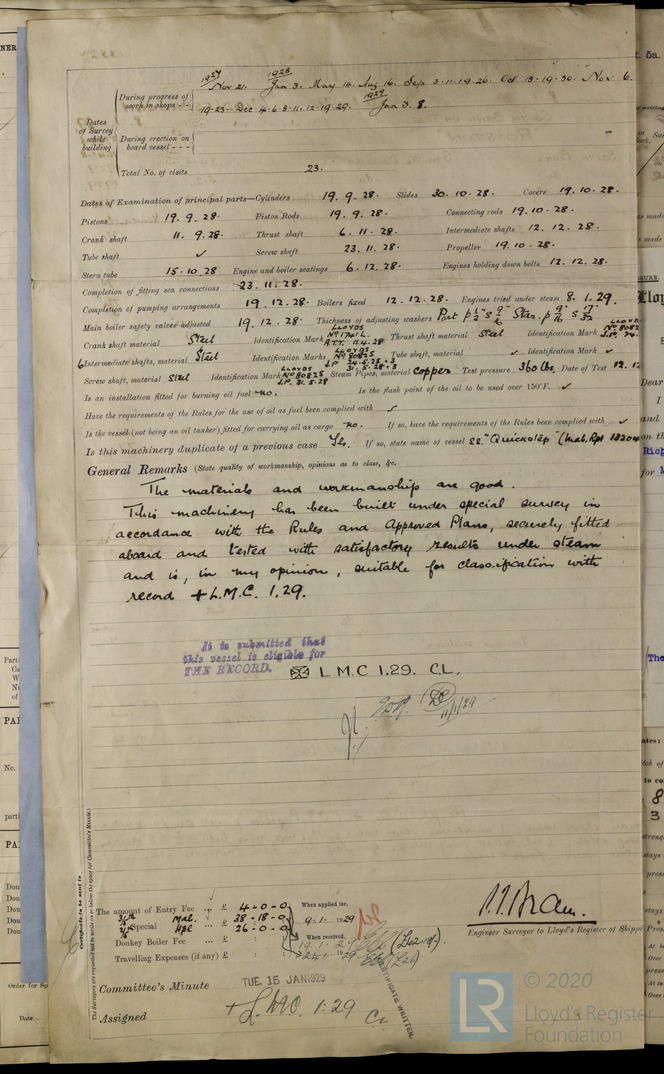 1927 1928
During progress of work in shops - - Nov 21. Jan 3. May 14. Aug 16. Sep 3.11.19.26. Oct 13.19.30. Nov 6.
1929
19.23. Dec 4.6.8.11.12.19.29. Jan 3.8.
Dates of Survey while building
During erection on board vessel - - -
Total No. of visits 23.
Dates of Examination of principal parts—Cylinders 19.9.28. Slides 30.10.28. Covers 19.10.28.
Pistons 19.9.28. Piston Rods 19.9.28. Connecting rods 19.10.28.
Crank shaft 11.9.28. Thrust shaft 6.11.28. Intermediate shafts 12.12.28.
Tube shaft ✓ Screw shaft 23.11.28. Propeller 19.10.28.
Stern tube 15.10.28 Engine and boiler seatings 6.12.28. Engines holding down bolts 12.12.28.
Completion of fitting sea connections 23.11.28.
Completion of pumping arrangements 19.12.28. Boilers fixed 12.12.28. Engines tried under steam 8.1.29.
Main boiler safety valves adjusted 19.12.28. Thickness of adjusting washers Port Star.
Crank shaft material Steel Identification Mark LLOYDS Thrust shaft material Steel Identification Mark LLOYDS
Intermediate shafts, material Steel Identification Marks LLOYDS Tube shaft, material ✓ Identification Mark ✓
Screw shaft, material Steel Identification Mark LLOYDS Nº 80825 J.P. 31.5.28 Steam Pipes, material copper Test pressure 360 lbs. Date of Test 12.12
Is an installation fitted for burning oil fuel no. Is the flash point of the oil to be used over 150°F. ✓
Have the requirements of the Rules for the use of oil as fuel been complied with ✓
Is the vessel (not being an oil tanker) fitted for carrying oil as cargo no. If so, have the requirements of the Rules been complied with ✓
Is this machinery duplicate of a previous case Yes. If so, state name of vessel ss. "Quickstep" (Mab. Rpt
General Remarks (State quality of workmanship, opinions as to class, &c.
The materials and workmanship are good.
This machinery has been built under special survey in
accordance with the Rules and Approved Plans, securely fitted
aboard and tested with satisfactory results under steam
and is, in my opinion, suitable for classification with
record + L.M.C. 1.29.
It is submitted that
this vessel is eligible for
THE RECORD. L M C 1.29. C L.
11/1/29
The amount of Entry Fee ... £ 4-0-0 When applied for,
Special £ 38-18-0 9.1.1929
£ 26-0-0
Donkey Boiler Fee ... £ When received,
Travelling Expenses (if any) £
Engineer Surveyor to Lloyd's Register of Shipp
Committee's Minute TUE. 15 JAN 1929
Assigned + L.M.C. 1:29 C.L.
CERTIFICATE WRITTEN.
Certificate to be sent to
The Surveyors are requested not to write on or below the space for Committee's Minute.
LR © 2020
Lloyd's Register
Foundation